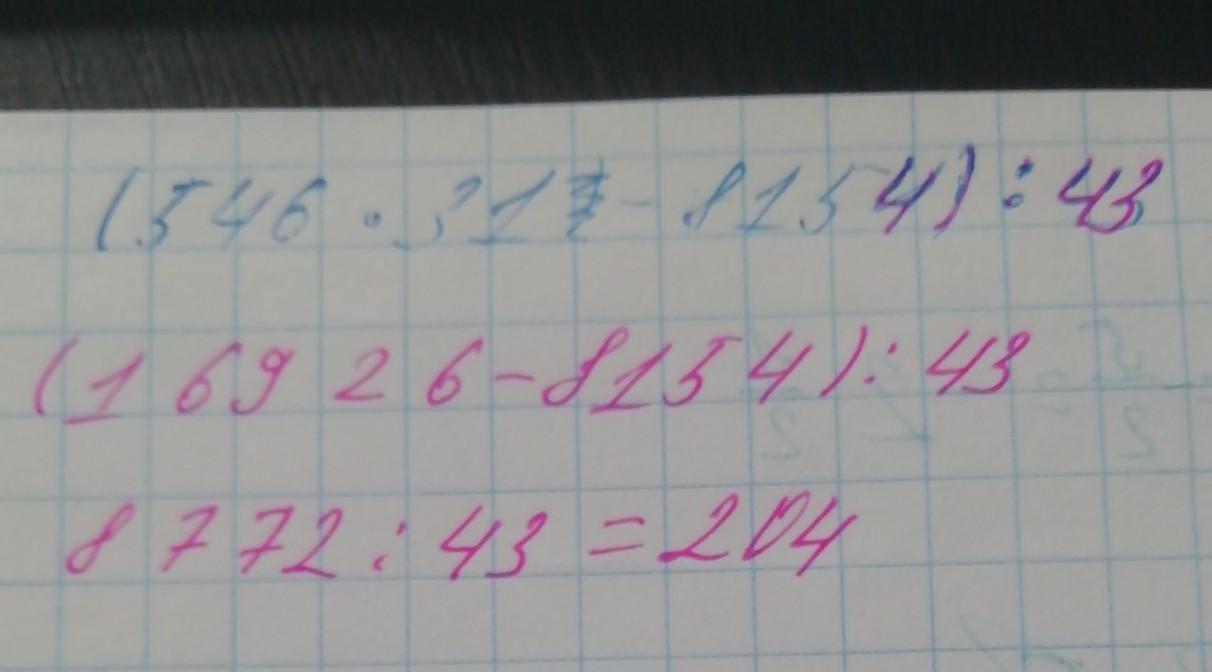 (546 · 31 - 8154) : 43
(16926-8154) : 43
8772 : 43 = 204